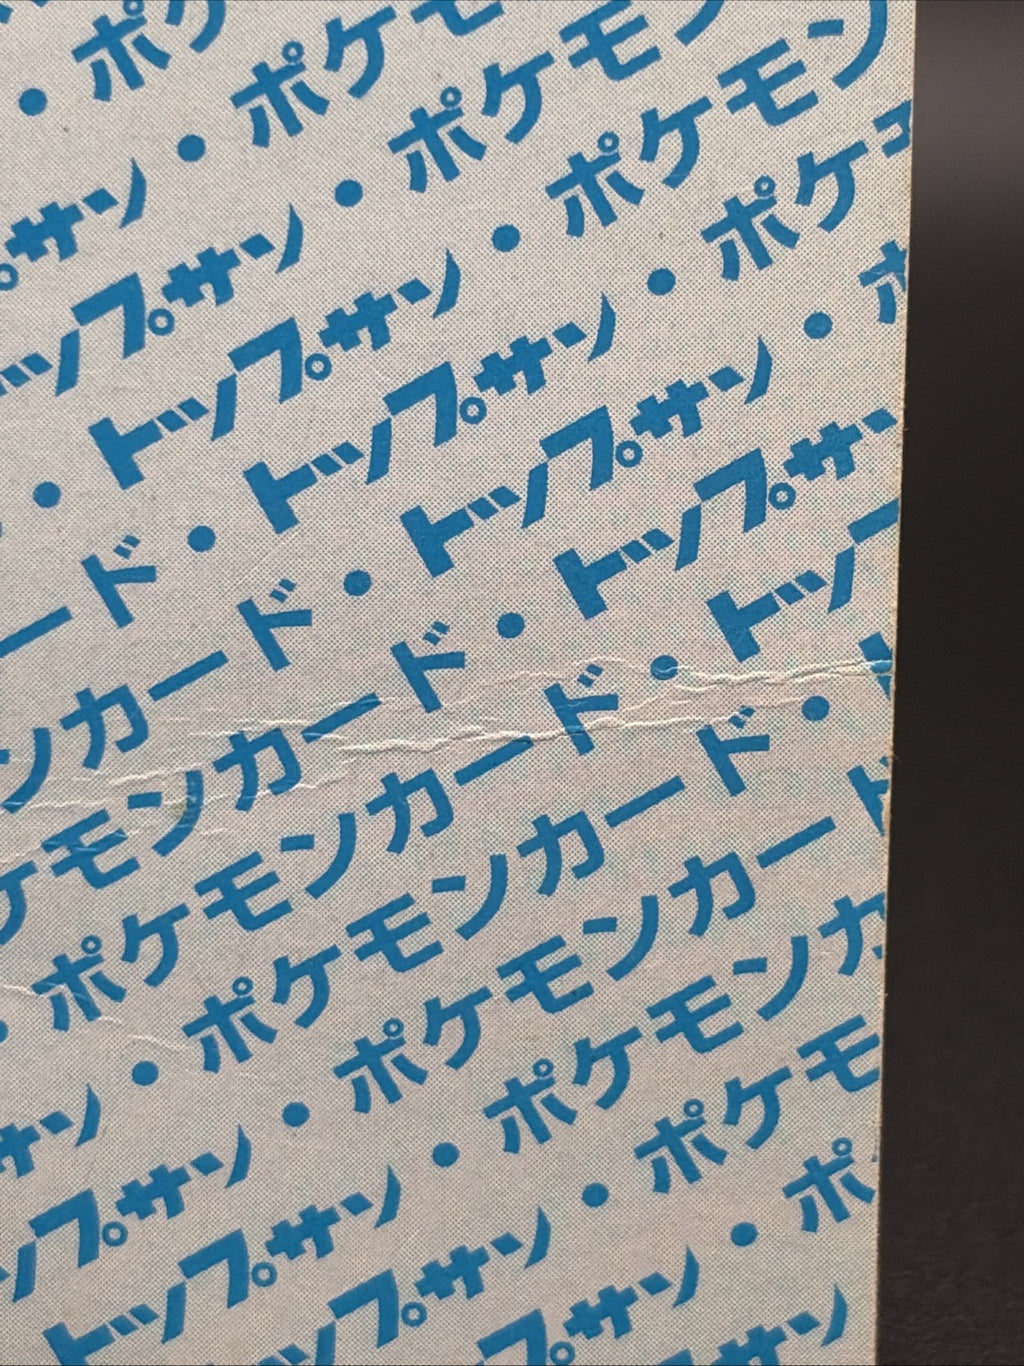 ・ポケ
サン・ポケモ
ップサン・ポケモン
・トップサン・ポケモン
ード・トップサン・ポケ
ンカード・トップサン・ポ
ケモンカード・トップサ
・ポケモンカード・トップ
サン・ポケモンカード・
プサン・ポケモンカード
トップサン・ポケモンカ
プサン・ポケモ
プサン・ポ
サン